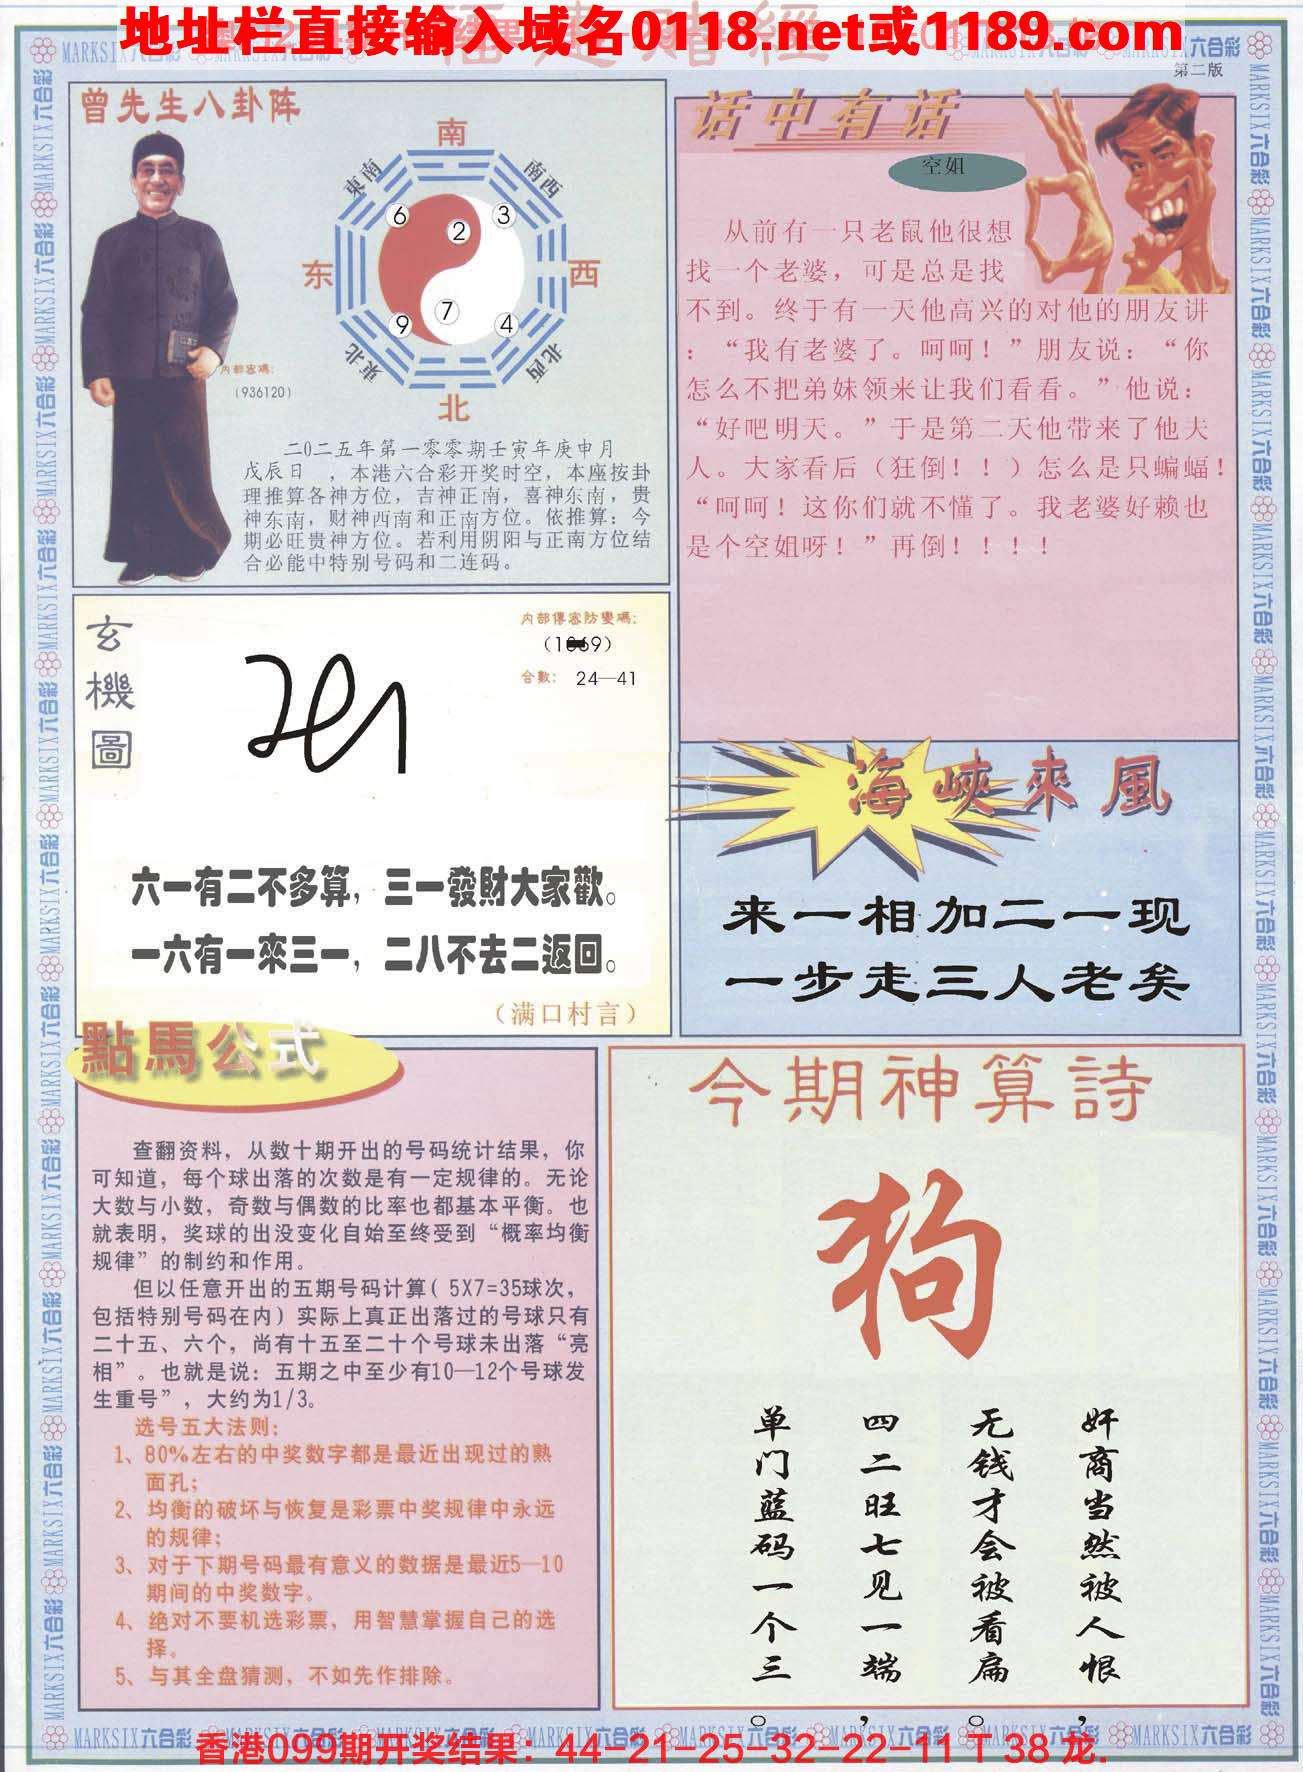 地址栏直接输入域名0118.net或1189.com
第二版
曾先生八卦阵
南
東南
南西
6
2
3
东
西
9
7
4
東北
北西
北
内部密碼：
(936120)
二O二五年第一零零期壬寅年庚申月
戊辰日，本港六合彩开奖时空，本座按卦
理推算各神方位，吉神正南，喜神东南，贵
神东南，财神西南和正南方位。依推算：今
期必旺贵神方位。若利用阴阳与正南方位结
合必能中特别号码和二连码。
话中有话
空姐
从前有一只老鼠他很想
找一个老婆，可是总是找
不到。终于有一天他高兴的对他的朋友讲
：“我有老婆了。呵呵！”朋友说：“你
怎么不把弟妹领来让我们看看。”他说：
“好吧明天。”于是第二天他带来了他夫
人。大家看后（狂倒！！）怎么是只蝙蝠！
“呵呵！这你们就不懂了。我老婆好赖也
是个空姐呀！”再倒！！！！
玄
機
圖
内部傳密防變碼：
合數： 24—41
六一有二不多算，三一發財大家歡。
一六有一來三一，二八不去二返回。
（满口村言）
海峽來風
来一相加二一现
一步走三人老矣
點馬公式
查翻资料，从数十期开出的号码统计结果，你
可知道，每个球出落的次数是有一定规律的。无论
大数与小数，奇数与偶数的比率也都基本平衡。也
就表明，奖球的出没变化自始至终受到“概率均衡
规律”的制约和作用。
但以任意开出的五期号码计算（5X7=35球次，
包括特别号码在内）实际上真正出落过的号球只有
二十五、六个，尚有十五至二十个号球未出落“亮
相”。也就是说：五期之中至少有10—12个号球发
生重号”，大约为1/3。
选号五大法则：
1、80%左右的中奖数字都是最近出现过的熟
面孔；
2、均衡的破坏与恢复是彩票中奖规律中永远
的规律；
3、对于下期号码最有意义的数据是最近5—10
期间的中奖数字。
4、绝对不要机选彩票，用智慧掌握自己的选
择。
5、与其全盘猜测，不如先作排除。
今期神算詩
狗
奸商当然被人恨，
无钱才会被看扁。
四二旺七见一端，
单门蓝码一个三。
香港099期开奖结果：44-21-25-32-22-11 T 38 龙.